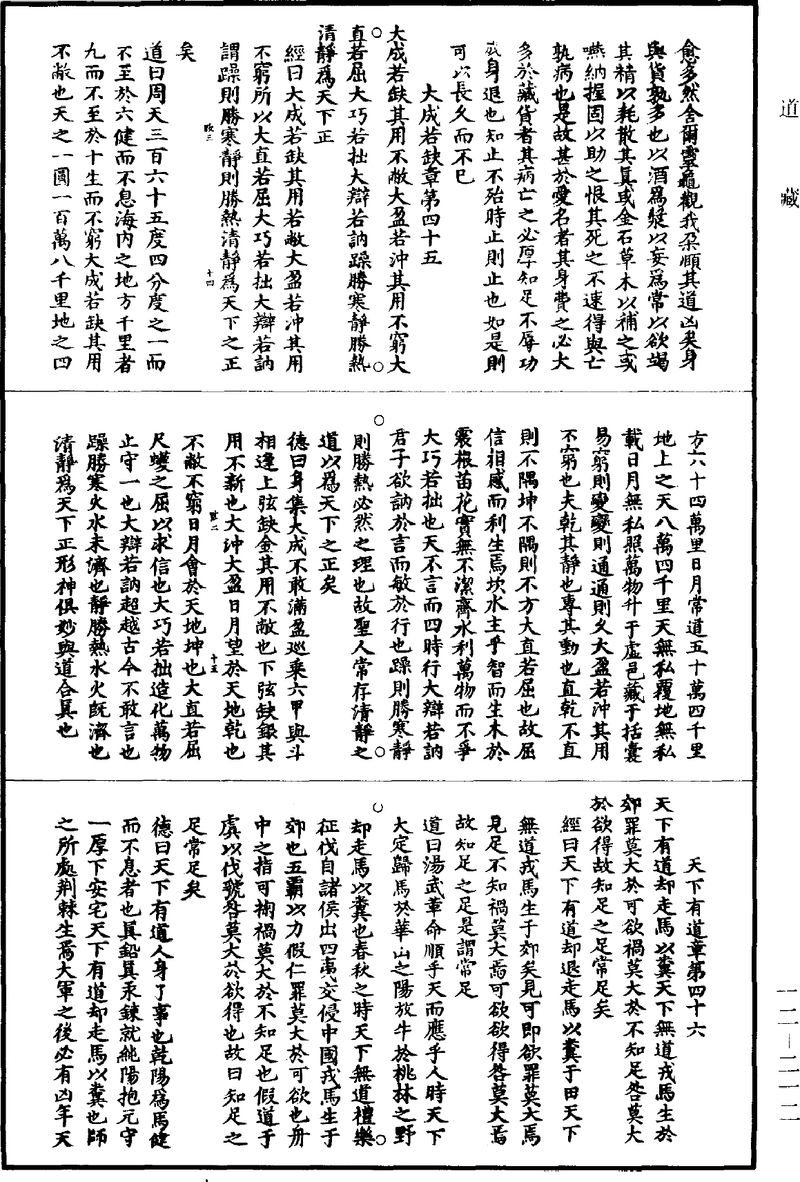 道藏
愈多然舍爾靈龜觀我朵頤其道凶矣身
與貨孰多也以酒為漿以妄為常以欲竭
其精以耗散其真或金石草木以補之或
嚥納握固以助之恨其死之不速得與亡
孰病也是故甚於愛名者其身費之必大
多於藏貨者其病亡之必厚知足不辱功
成身退也知止不殆時止則止也如是則
可以長久而不已
大成若缺章第四十五
大成若缺其用不敝大盈若沖其用不窮大
直若屈大巧若拙大辯若訥躁勝寒靜勝熱
清靜為天下正
經曰大成若缺其用若敝大盈若沖其用
不窮所以大直若屈大巧若拙大辯若訥
謂躁則勝寒靜則勝熱清靜為天下之正
矣
道曰周天三百六十五度四分度之一而
不至於六健而不息海內之地方千里者
九而不至於十生而不窮大成若缺其用
不敝也天之一圓一百萬八千里地之四
方六十四萬里日月常道五十萬四千里
地上之天八萬四千里天無私覆地無私
載日月無私照萬物升于虛邑藏于括囊
易窮則變變則通通則久大盈若沖其用
不窮也夫乾其靜也專其動也直乾不直
則不隅坤不隅則不方大直若屈也故屈
信相感而利生焉坎水主乎智而生木於
震根苗花實無不潔齊水利萬物而不爭
大巧若拙也天不言而四時行大辯若訥
君子欲訥於言而敏於行也躁則勝寒靜
則勝熱必然之理也故聖人常存清靜之
道以為天下之正矣
德曰身集大成不敢滿盈巡乘六甲與斗
相逢上弦缺金其用不敝也下弦缺銀其
用不新也大沖大盈日月望於天地乾也
不敝不窮日月會於天地坤也大直若屈
尺蠖之屈以求信也大巧若拙造化萬物
止守一也大辯若訥超越古今不敢言也
躁勝寒火水未濟也靜勝熱水火既濟也
清靜為天下正形神俱妙與道合真也
天下有道章第四十六
天下有道却走馬以糞天下無道戎馬生於
郊罪莫大於可欲禍莫大於不知足咎莫大
於欲得故知足之足常足矣
經曰天下有道却退走馬以糞于田天下
無道戎馬生于郊矣見可即欲罪莫大焉
見足不知禍莫大焉可欲欲得咎莫大焉
故知足之足是謂常足
道曰湯武革命順乎天而應乎人時天下
大定歸馬於華山之陽放牛於桃林之野
却走馬以糞也春秋之時天下無道禮樂
征伐自諸侯出四夷交侵中國戎馬生于
郊也五霸以力假仁罪莫大於可欲也舟
中之指可掬禍莫大於不知足也假道于
虞以伐虢咎莫大於欲得也故曰知足之
足常足矣
德曰天下有道人身了事也乾陽為馬健
而不息者也真鉛真汞鍊就純陽抱元守
一厚下安宅天下有道却走馬以糞也師
之所處荊棘生焉大軍之後必有凶年天
一二—二一二